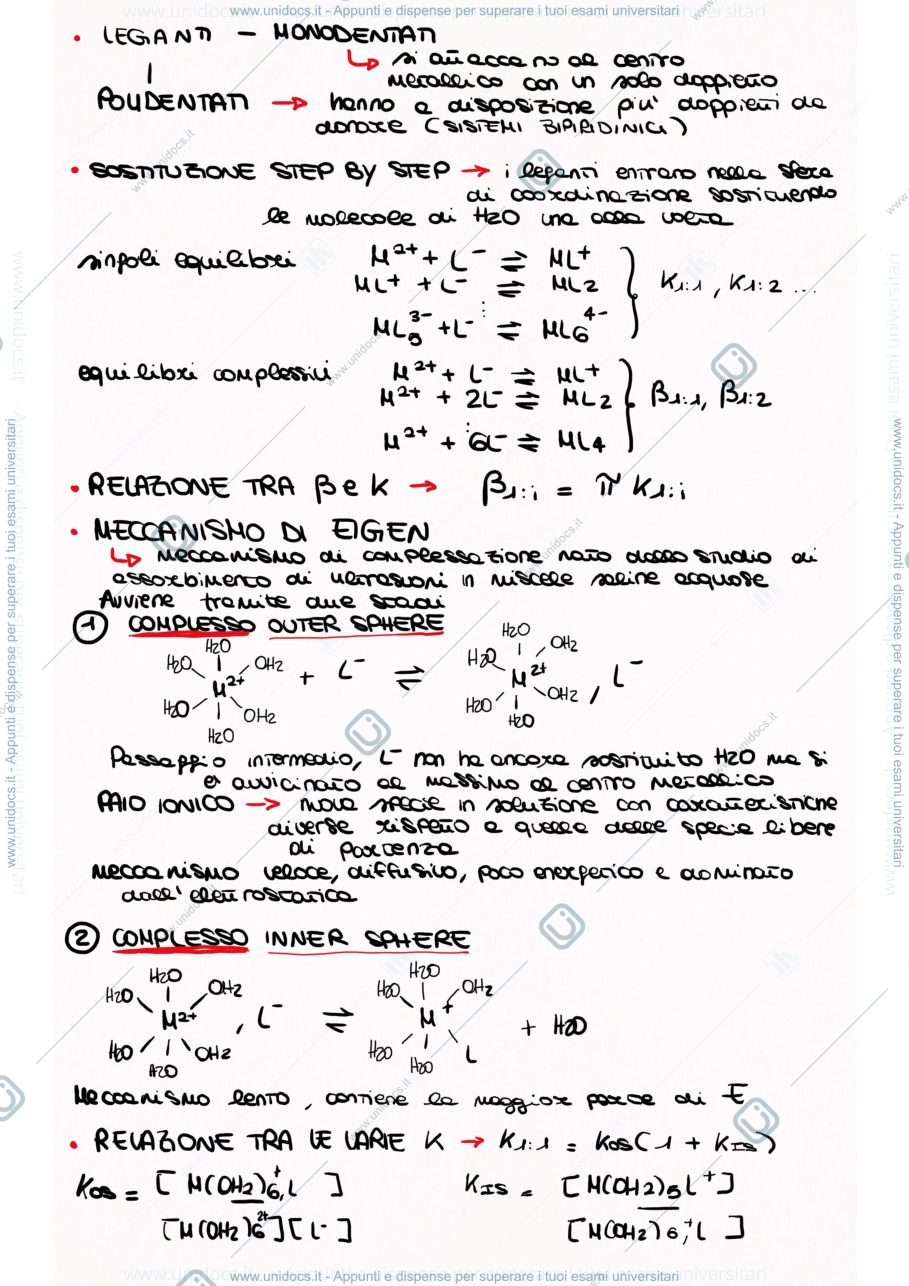 www.unidocs.it - Appunti e dispense per superare i tuoi esami universitari
• LEGANTI — MONODENTATI
↳ si attaccano al centro
metallico con un solo doppietto
POLIDENTATI → hanno a disposizione più doppietti da
donare (SISTEMI BIPIRIDINICI)
• SOSTITUZIONE STEP BY STEP → i leganti entrano nella sfera
di coordinazione sostituendo
le molecole di H2O una alla volta
singoli equilibri M²⁺ + L⁻ ⇌ ML⁺
ML⁺ + L⁻ ⇌ ML2 } K1:1, K1:2 ...
⋮
ML5³⁻ + L⁻ ⇌ ML6⁴⁻
equilibri complessivi M²⁺ + L⁻ ⇌ ML⁺
M²⁺ + 2L⁻ ⇌ ML2 } β1:1, β1:2
⋮
M²⁺ + 6L⁻ ⇌ ML4
• RELAZIONE TRA β e K → β1:i = π K1:i
• MECCANISMO DI EIGEN
↳ meccanismo di complessazione nato dallo studio di
assorbimento di ultrasuoni in miscele saline acquose
Avviene tramite due stadi
① COMPLESSO OUTER SPHERE
H2O H2O
H2O OH2 H2O OH2
M²⁺ + L⁻ ⇌ M²⁺ , L⁻
H2O OH2 H2O OH2
H2O H2O
Passaggio intermedio, L⁻ non ha ancora sostituito H2O ma si
è avvicinato al massimo al centro metallico
PAIO IONICO → nuova specie in soluzione con caratteristiche
diverse rispetto a quelle delle specie libere
di partenza
meccanismo veloce, diffusivo, poco energetico e dominato
dall'elettrostatica
② COMPLESSO INNER SPHERE
H2O H2O
H2O OH2 H2O OH2
M²⁺ , L⁻ ⇌ M⁺ + H2O
H2O OH2 H2O L
H2O H2O
Meccanismo lento, contiene la maggior parte di E
• RELAZIONE TRA LE VARIE K → K1:1 = KOS(1 + KIS)
KOS = [M(OH2)6⁺,L] KIS = [M(OH2)5L⁺]
[M(OH2)6²⁺][L⁻] [M(OH2)6⁺,L]
www.unidocs.it - Appunti e dispense per superare i tuoi esami universitari